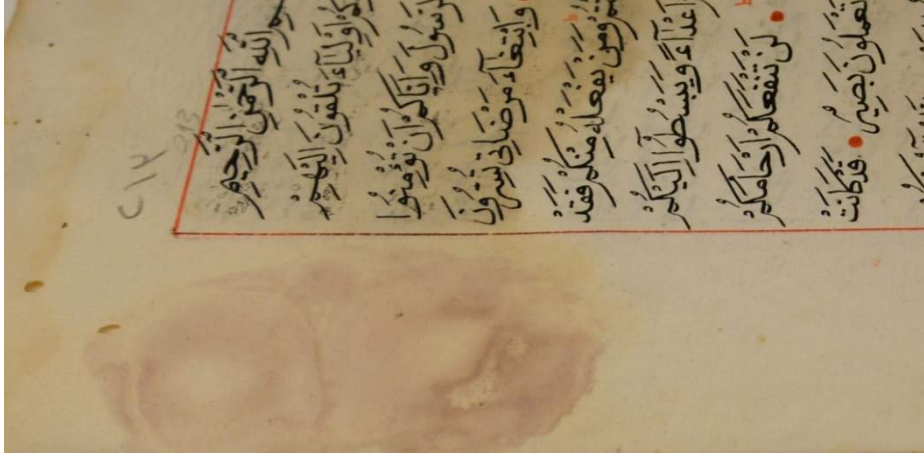 اللهِ الرَّحْمٰنِ الرَّحِيمِ
أَوْلِيَاءَ تُلْقُونَ إِلَيْهِمْ
وَإِيَّاكُمْ أَنْ تُؤْمِنُوا
وَابْتِغَاءَ مَرْضَاتِي تُسِرُّونَ
وَمَنْ يَفْعَلْهُ مِنْكُمْ فَقَدْ
أَعْدَاءً وَيَبْسُطُوا إِلَيْكُمْ
لَنْ تَنْفَعَكُمْ أَرْحَامُكُمْ
تَعْمَلُونَ بَصِيرٌ قَدْ كَانَتْ